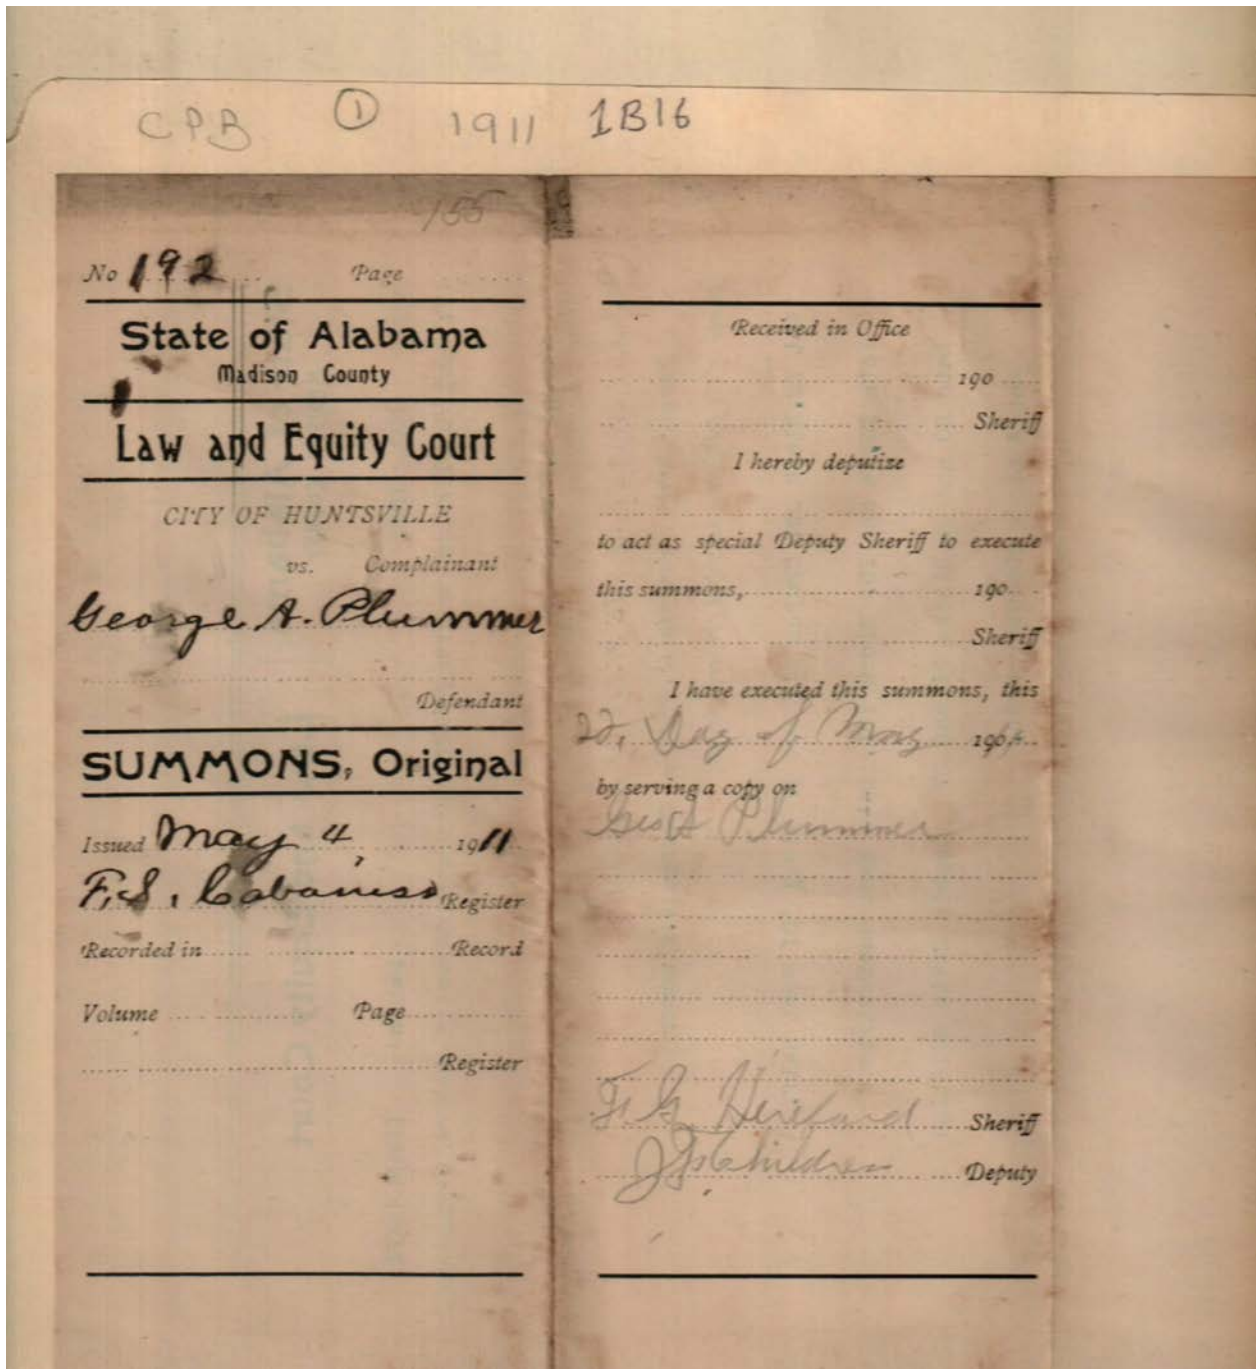 CPB ① 1911 1B16
155
No 192 Page
State of Alabama
Madison County
Law and Equity Court
CITY OF HUNTSVILLE
vs. Complainant
George A. Plummer
Defendant
SUMMONS, Original
Issued May 4, 1911
F.S. Cabaniss Register
Recorded in Record
Volume Page
Register
Received in Office
190
Sheriff
I hereby deputize
to act as special Deputy Sheriff to execute
this summons, 190
Sheriff
I have executed this summons, this
22, Day of May 190
by serving a copy on
Geo A Plummer
Sheriff
Deputy